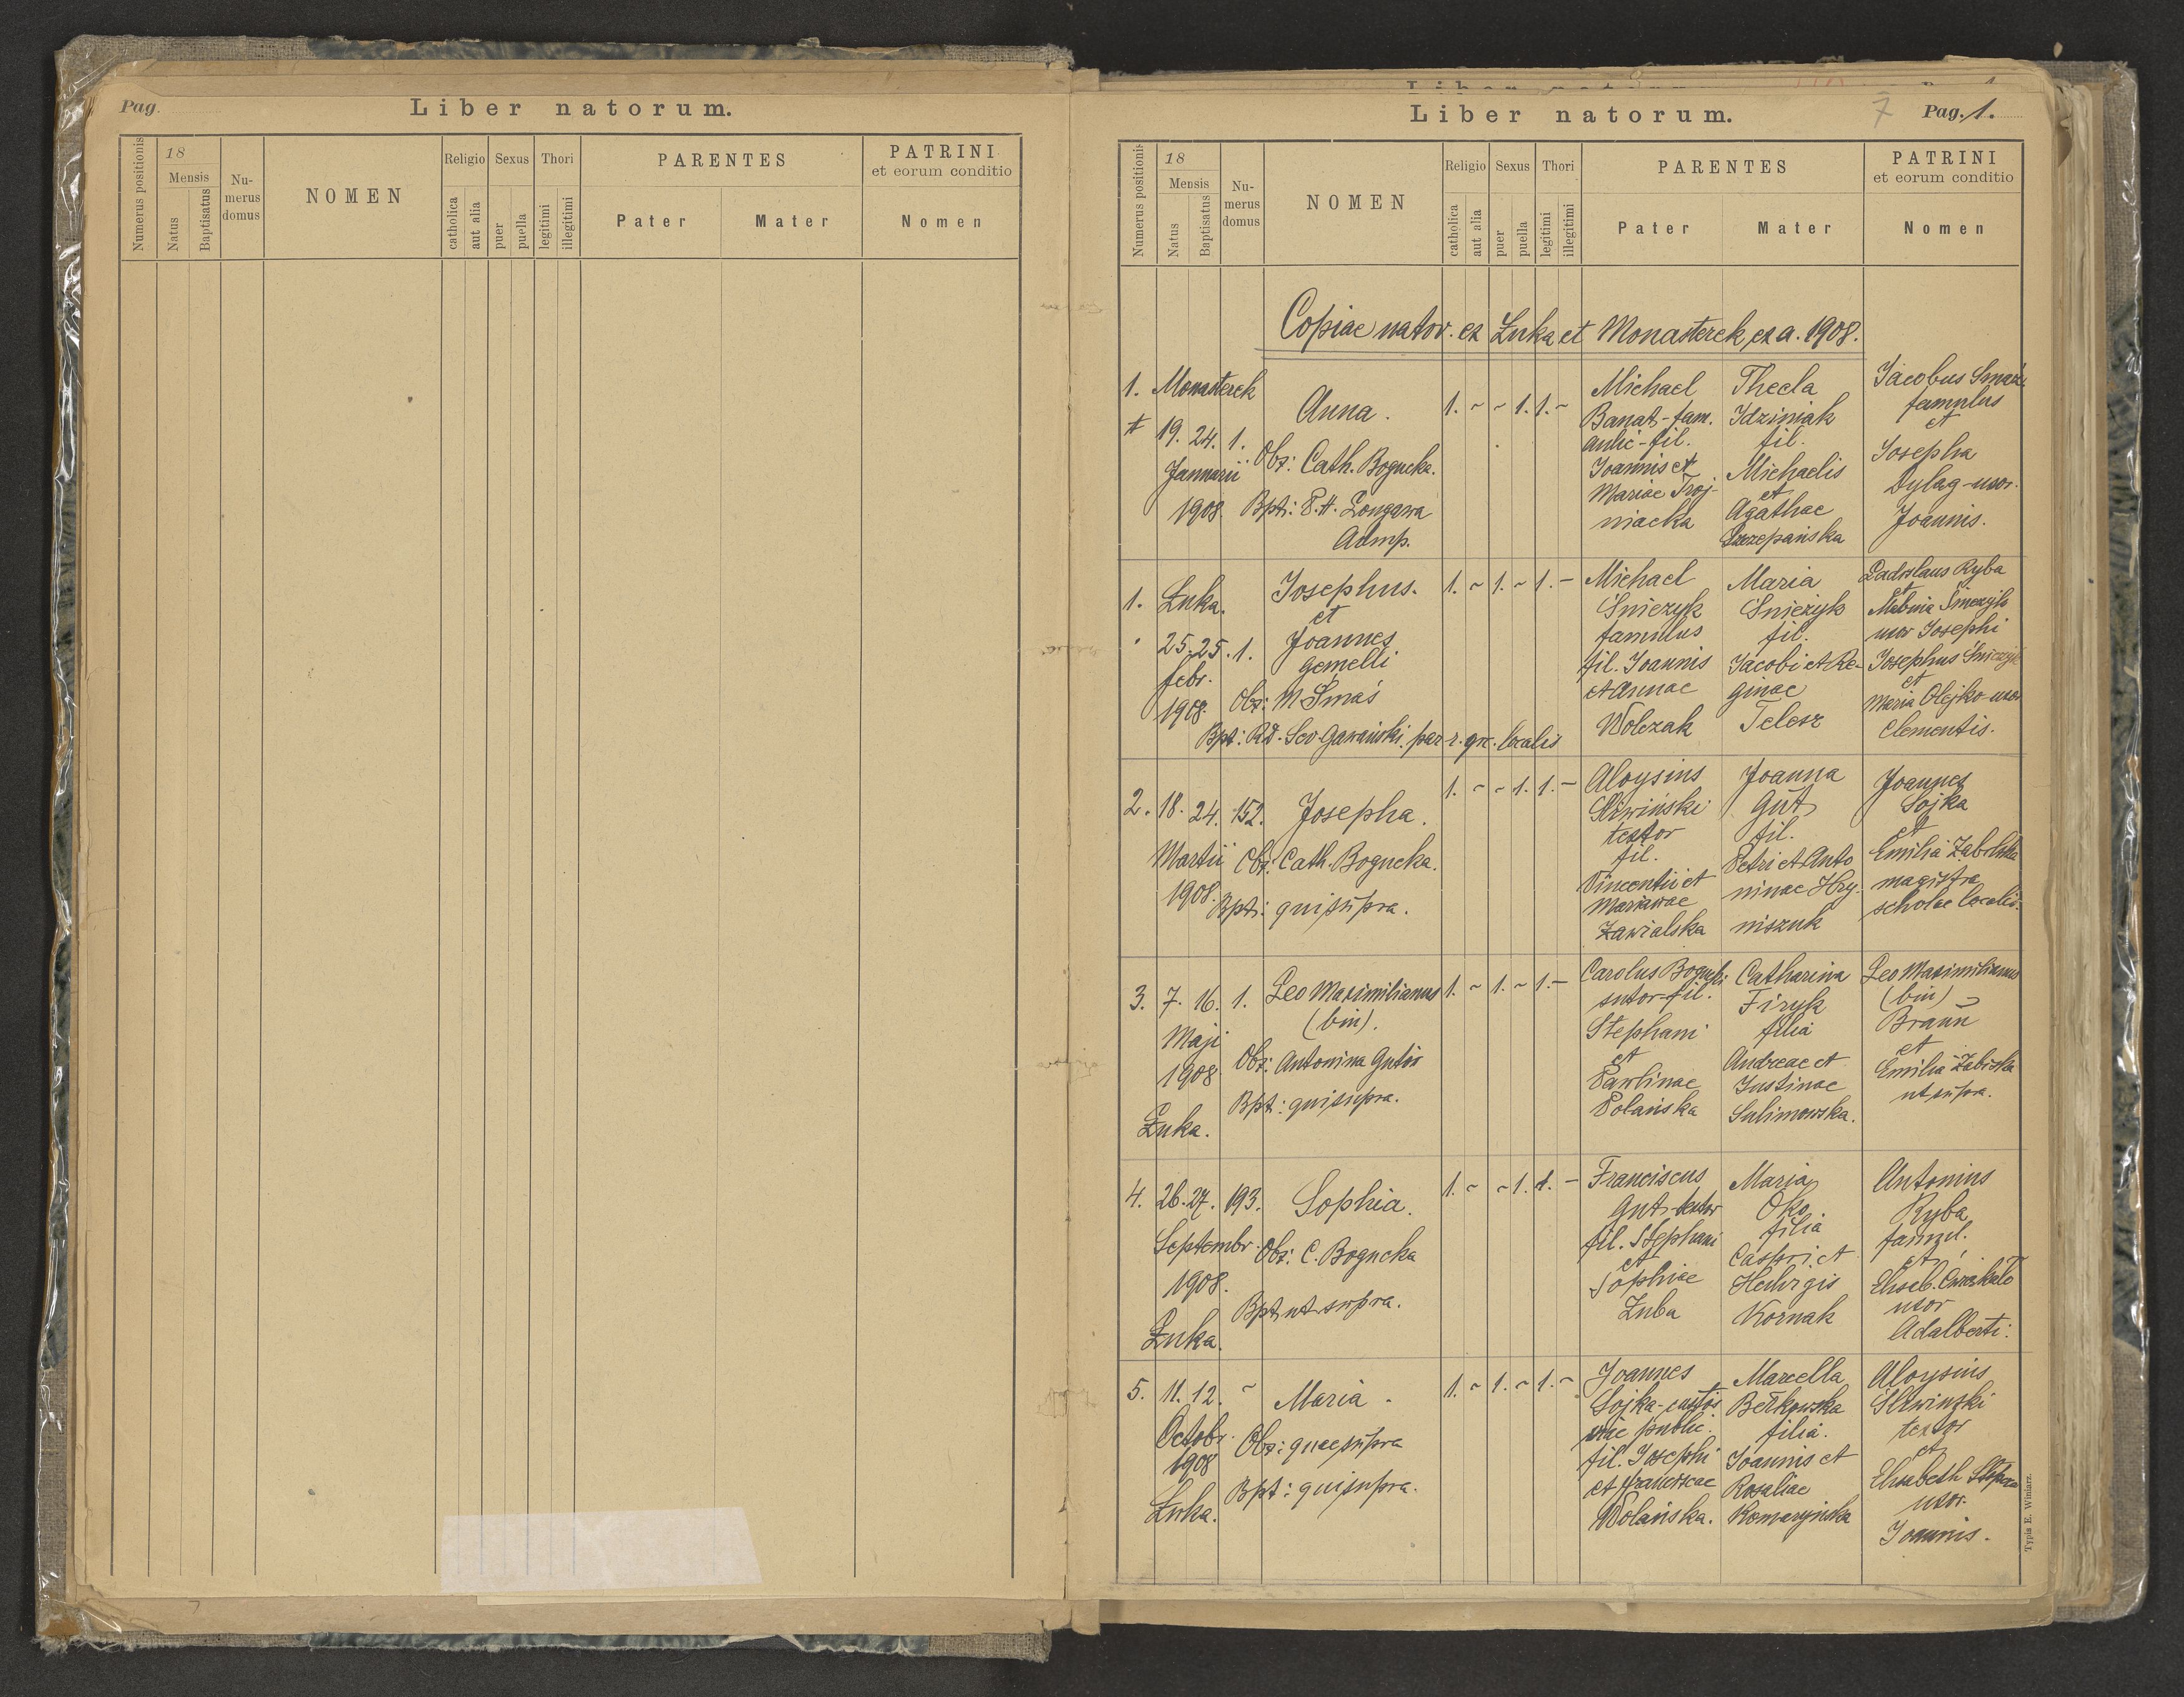 Pag.
Liber natorum.
Numerus positionis
18
Mensis
Natus
Baptisatus
Nu-
merus
domus
NOMEN
Religio
catholica
aut alia
Sexus
puer
puella
Thori
legitimi
illegitimi
PARENTES
Pater
Mater
PATRINI
et eorum conditio
Nomen
Liber natorum.
7
Pag. 1.
Numerus positionis
18
Mensis
Natus
Baptisatus
Nu-
merus
domus
NOMEN
Religio
catholica
aut alia
Sexus
puer
puella
Thori
legitimi
illegitimi
PARENTES
Pater
Mater
PATRINI
et eorum conditio
Nomen
Copiae nator. ex Łuka et Monasterek ex a. 1908.
1. Monasterek
19. 24. 1.
Januarii
1908.
Anna.
Obs: Cath. Bogucka.
Bpt: Longawa
Admp.
1. ~ ~ 1. 1. ~
Michael
Banat-fam.
aulic-fil.
Joannis et
Mariae Troj-
niacka
Thecla
Idziniak
fil.
Michaelis
et
Agathae
Szczepańska
Jacobus
famulus
et
Josepha
Dyląg-uxor.
Joannis.
1. Łuka.
25. 25. 1.
febr.
1908.
Josephus.
et
Joannes
gemelli
Obs: M Smaś
Bpt: Rd. Sev. Gawański par r. gr. localis
1. ~ 1. ~ 1. –
Michael
Śnieżyk
famulus
fil. Joannis
et Annae
Wolczak
Maria
Śnieżyk
fil.
Jacobi et Re-
ginae
Telesz
Ladislaus Ryba
et
uxor Josephi
Josephus Śnieżyk
et
Maria Olejko-uxor
Clementis.
2. 18. 24. 152.
Martii
1908.
Josepha.
Obs: Cath. Bogucka.
Bpt: qui supra.
1. ~ ~ 1. 1. –
Aloysius
Śliwiński
textor
fil.
Vincentii et
Marianae
Zawialska
Joanna
Gut
fil.
Petri et Anto
ninae Hry-
niszuk
Joannes
Sojka
et
Emilia
magistra
scholae localis.
3. 7. 16. 1.
Maji
1908
Łuka.
Leo Maximilianus
(bin).
Obs: Antonina Gutis
Bpt: qui supra.
1. ~ 1. ~ 1. –
Carolus Bogucki
sutor-fil.
Stephani
et
Paulinae
Polańska
Catharina
Firyk
filia
Andreae et
Justinae
Sulimowska.
Leo Maximilianus
(bin)
Braun
et
Emilia
ut supra.
4. 26. 27. 193.
Septembr.
1908.
Łuka.
Sophia.
Obs: C. Bogucka
Bpt. ut supra.
1. ~ ~ 1. 1. –
Franciscus
Gut-textor
fil. Stephani
et
Sophiae
Łuba
Maria
Oko
filia
Caspri et
Hedvigis
Kornak
Antonius
Ryba
famul.
et
Eliseb.
uxor
Adalberti.
5. 11. 12. ~
Octobr.
1908
Łuka.
Maria.
Obs: quae supra
Bpt: qui supra.
1. ~ 1. ~ 1. ~
Joannes
Sojka-custos
viae public.
fil. Josephi
et Franciscae
Wolańska.
Marcella
Berkowska
filia.
Joannis et
Rosaliae
Komaryńska
Aloysius
Śliwiński
textor
et
Elisabeth
uxor.
Joannis.
Typis E. Winiarz.